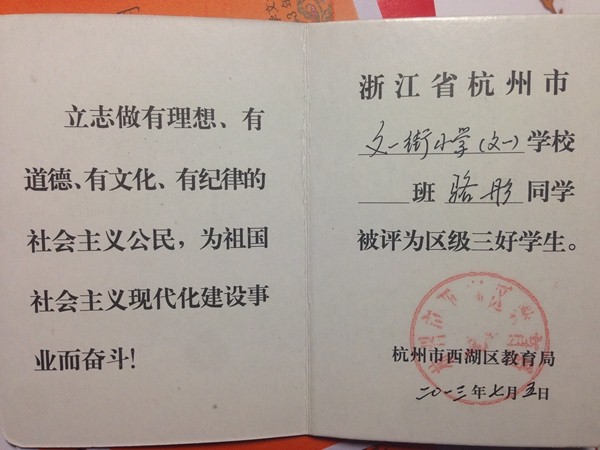 立志做有理想、有
道德、有文化、有纪律的
社会主义公民，为祖国
社会主义现代化建设事
业而奋斗！
浙江省杭州市
文一街小学(文一)学校
班 骆彤 同学
被评为区级三好学生。
杭州市西湖区教育局
二〇一三年七月五日